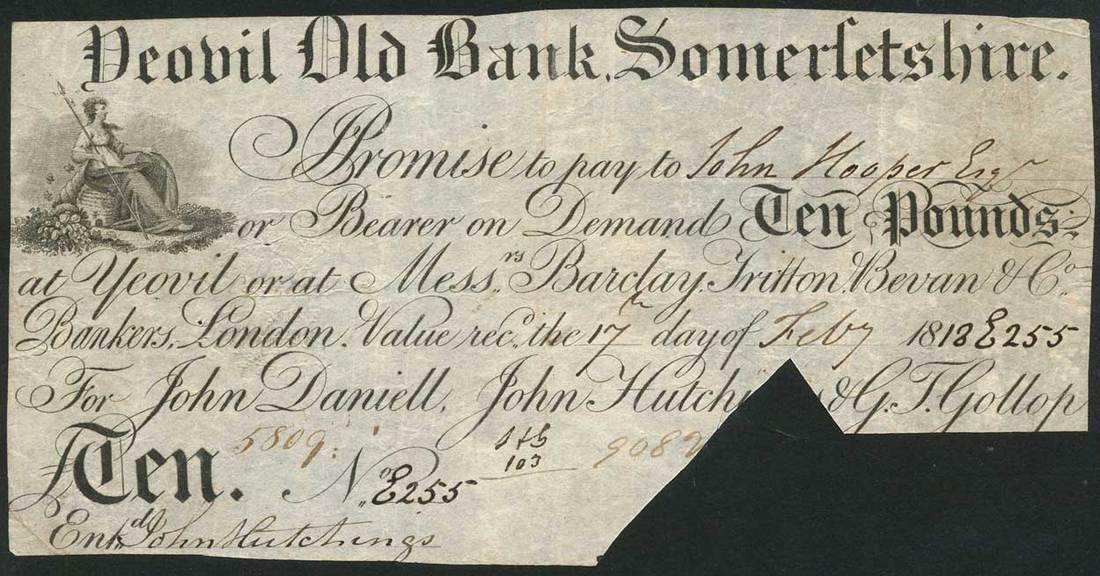 Yeovil Old Bank, Somerſetshire.
I Promise to pay to John Hooper Esqr
or Bearer on Demand Ten Pounds
at Yeovil or at Messrs. Barclay, Tritton, Bevan & Co.
Bankers, London. Value recd. the 17th day of Feby 1818 E255
For John Daniell, John Hutchi & G. T. Gollop
£Ten. 5809: No. E255 103 9082
Entd. John Hutchings